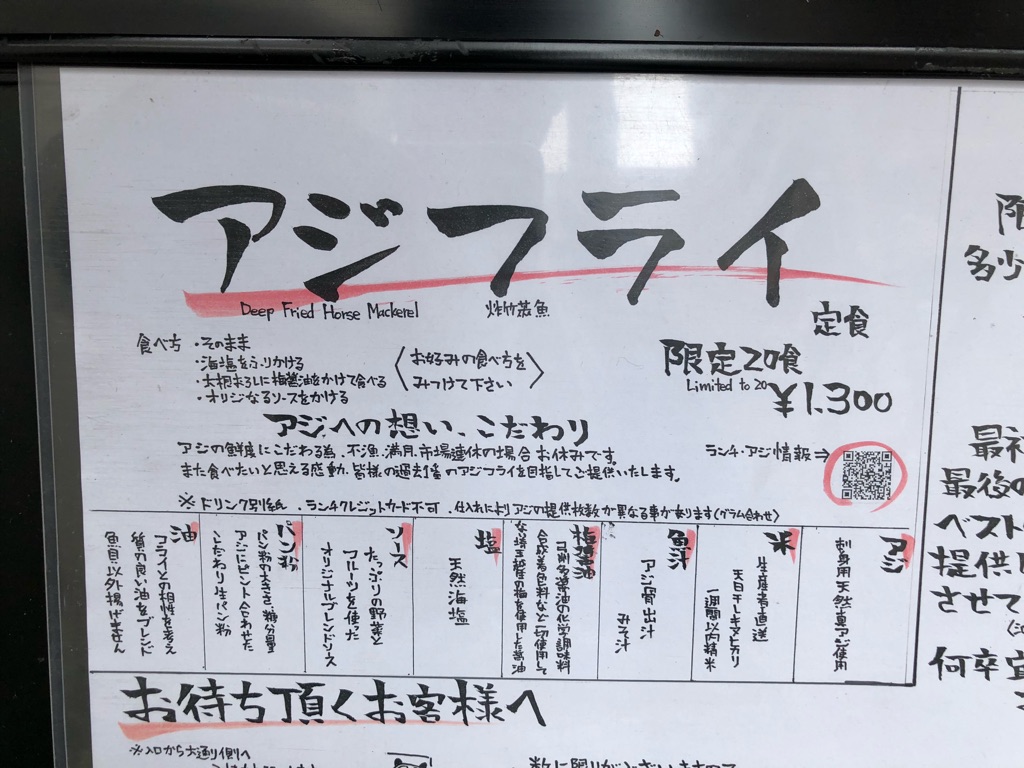 アジフライ
Deep Fried Horse Mackerel
炸竹莢魚
定食
食べ方 ・そのまま
・海塩をふりかける
・大根おろしに梅醤油をかけて食べる
・オリジナルソースをかける
お好みの食べ方を
みつけて下さい
限定20食
Limited to 20
¥1,300
アジへの想い、こだわり
アジの鮮度にこだわる為、不漁、満月、市場連休の場合お休みです。
また食べたいと思える感動、皆様の過去1番のアジフライを目指してご提供いたします。
ランチ・アジ情報→
※ドリンク別紙 ・ランチクレジットカード不可 ・仕入によりアジの提供枚数が異なる事があります(グラム合わせ)
アジ
刺身用天然真アジ使用
米
生産者直送
天日干しキヌヒカリ
1週間以内精米
魚汁
アジ骨出汁
みそ汁
梅醤油
合成着色料など一切使用して
な
塩
天然海塩
ソース
たっぷりの野菜と
フルーツを使った
オリジナルブレンドソース
パン粉
パン粉の大きさ、糖分量
アジにピント合わせた
こだわり生パン粉
油
フライとの相性を考え
質の良い油をブレンド
魚貝以外揚げません
お待ち頂くお客様へ
※入口から大通り側へ
限
多少
最初
最後の
ベスト
提供
させて
何卒宜